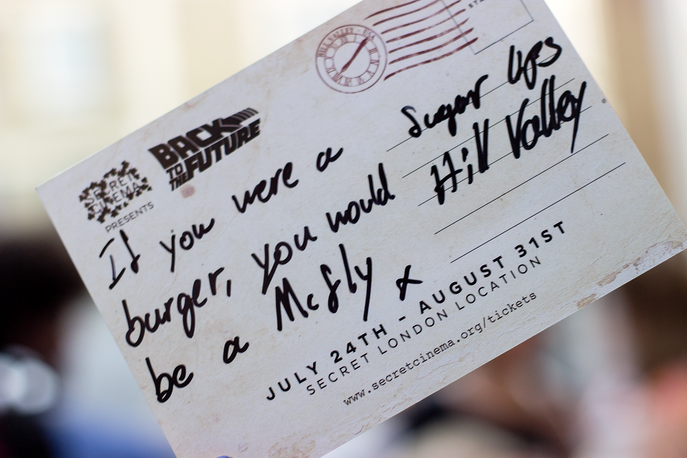 SECRET
CINEMA
PRESENTS
BACK
TO THE
FUTURE
If you were a
burger, you would
be a McFly x
HILL VALLEY - CA
Sugar Lips
Hill Valley
JULY 24TH - AUGUST 31ST
SECRET LONDON LOCATION
www.secretcinema.org/tickets